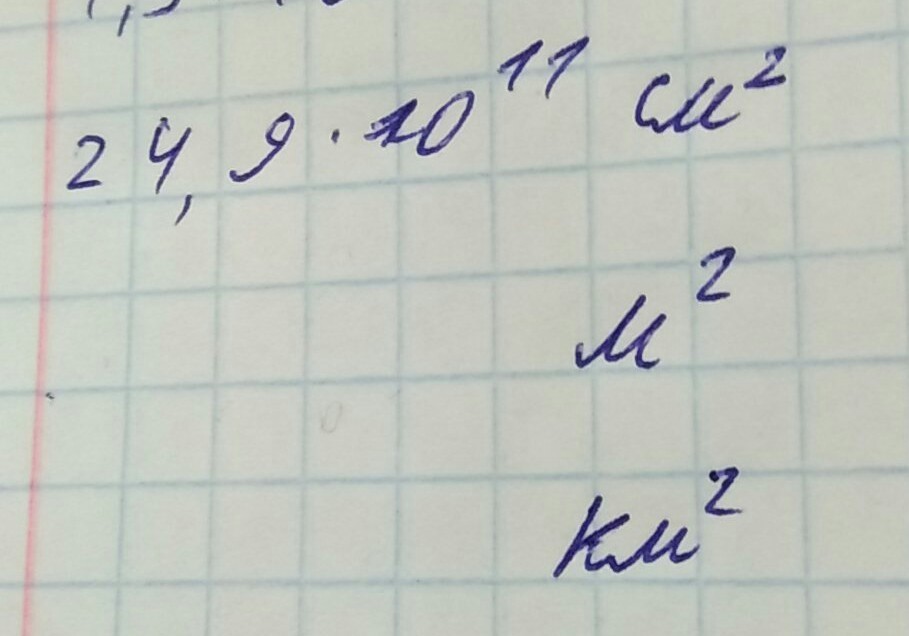 24,9 · 10¹¹ см²
м²
км²